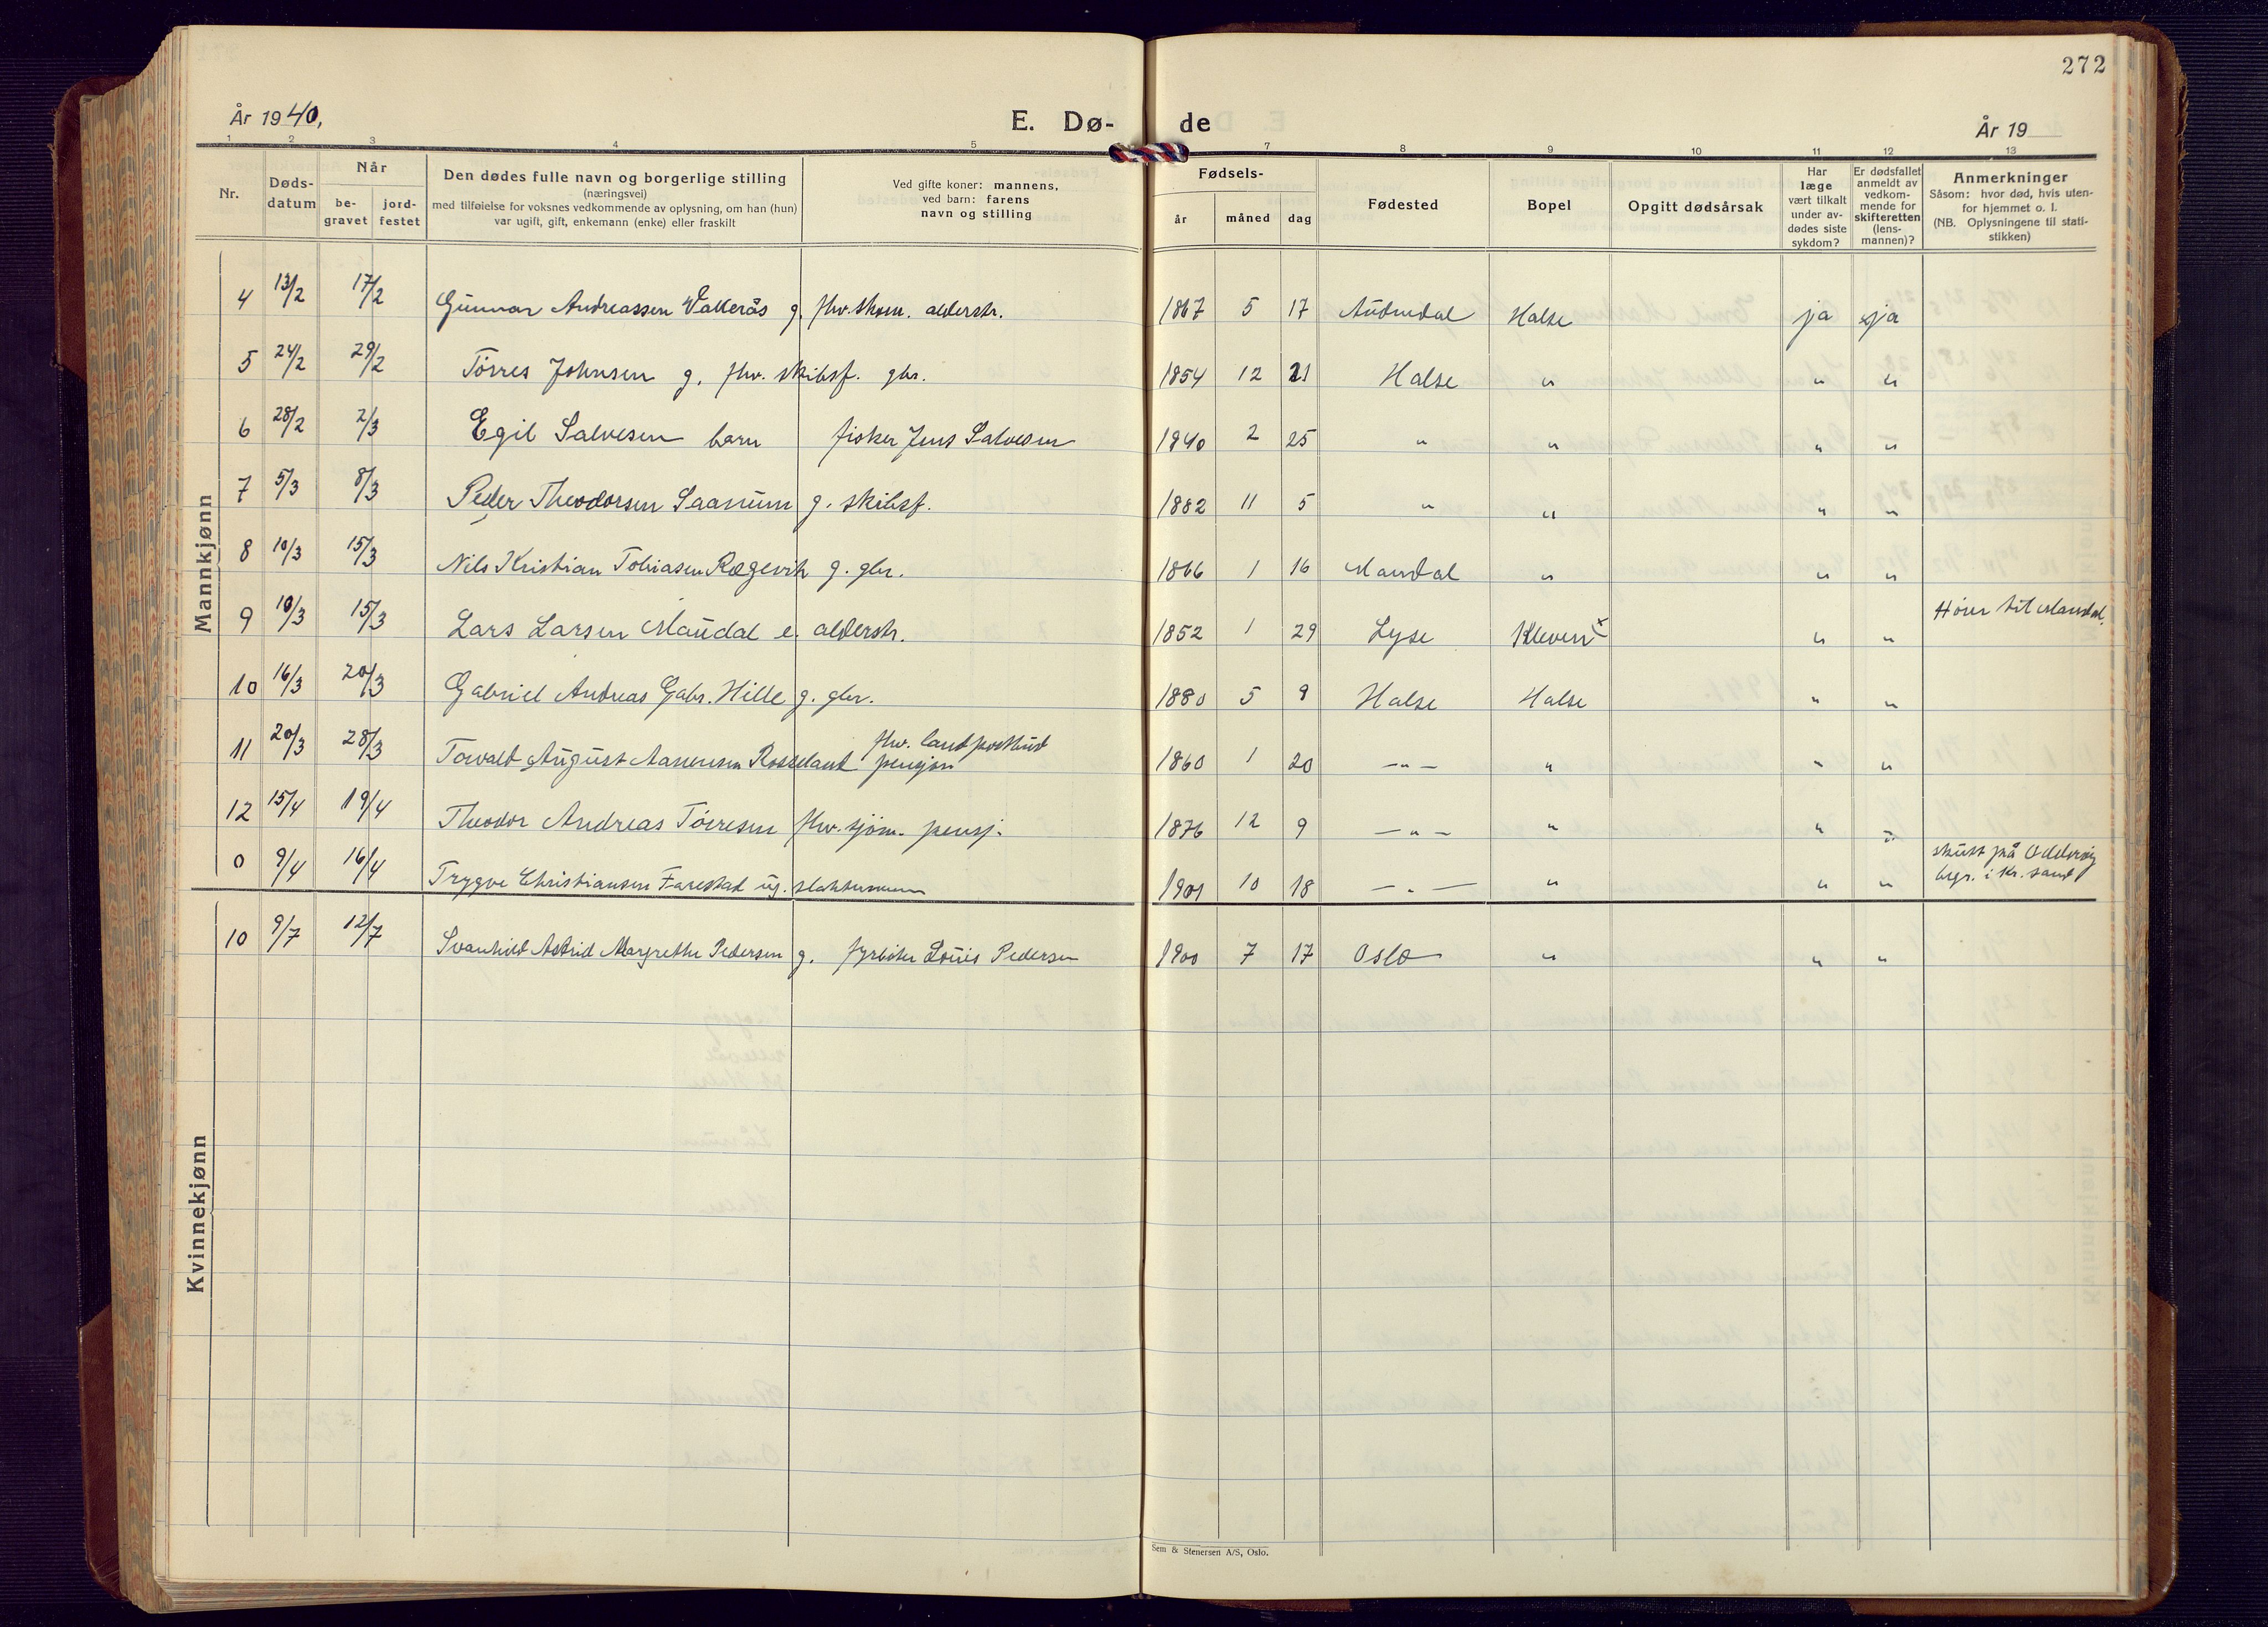 272
År 1940,
E. Dø-
de
År 19
1 2 3 4 5 7 8 9 10 11 12 13
Nr.
Døds-
datum
Når
be-
gravet
jord-
festet
Den dødes fulle navn og borgerlige stilling
(næringsvei)
med tilføielse for voksnes vedkommende av oplysning, om han (hun)
var ugift, gift, enkemann (enke) eller fraskilt
Ved gifte koner: mannens,
ved barn: farens
navn og stilling
Fødsels-
år
måned
dag
Fødested
Bopel
Opgitt dødsårsak
Har
læge
vært tilkalt
under av-
dødes siste
sykdom?
Er dødsfallet
anmeldt av
vedkom-
mende for
skifteretten
(lens-
mannen)?
Anmerkninger
Såsom: hvor død, hvis uten-
for hjemmet o. l.
(NB. Oplysningene til stati-
stikken)
Mannkjønn
4 13/2 17/2 Gunnar Andreassen Vallerås g. fhv. skom. alderstr. 1867 5 17 Audnedal Halse ja ja
5 24/2 29/2 Tørres Johnsen g. fhv. skibsf. gbr. 1854 12 21 Halse " " "
6 28/2 2/3 Egil Salvesen barn fisker Jens Salvesen 1940 2 25 " " " "
7 5/3 8/3 Peder Theodorsen Saanum g. skibsf. 1882 11 5 " " " "
8 10/3 15/3 Nils Kristian Tobiasen Rægevik g. gbr. 1866 1 16 Mandal " " "
9 10/3 15/3 Lars Larsen Maudal e. alderstr. 1852 1 29 Lyse Kleven x " " Hører til Mandal.
10 16/3 20/3 Gabriel Andreas Gabr. Hille g. gbr. 1880 5 9 Halse Halse " "
fhv. landpostbud
11 20/3 28/3 Torvald August Aanensen Rosseland pensjon 1860 1 20 —"— " " "
12 15/4 19/4 Theodor Andreas Tørresen fhv. sjøm. pensj. 1876 12 9 —"— " " "
0 9/4 16/4 Trygve Christiansen Farestad ug. slakter 1901 10 18 —"— " " " skutt på Odderøy
begr. i Kr. sand
Kvinnekjønn
10 9/7 12/7 Svanhild Astrid Margrethe Pedersen g. fyrbøter Louis Pedersen 1900 7 17 Oslo " " "
Sem & Stenersen A/S, Oslo.